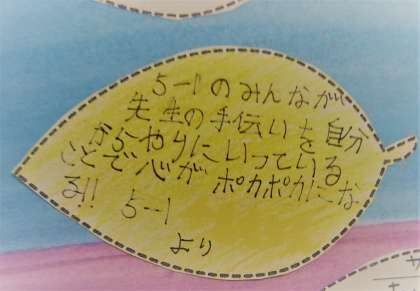 5-1のみんなが
先生の手伝いを自分
からやりにいっている
ことで心がポカポカにな
る!! 5-1
より